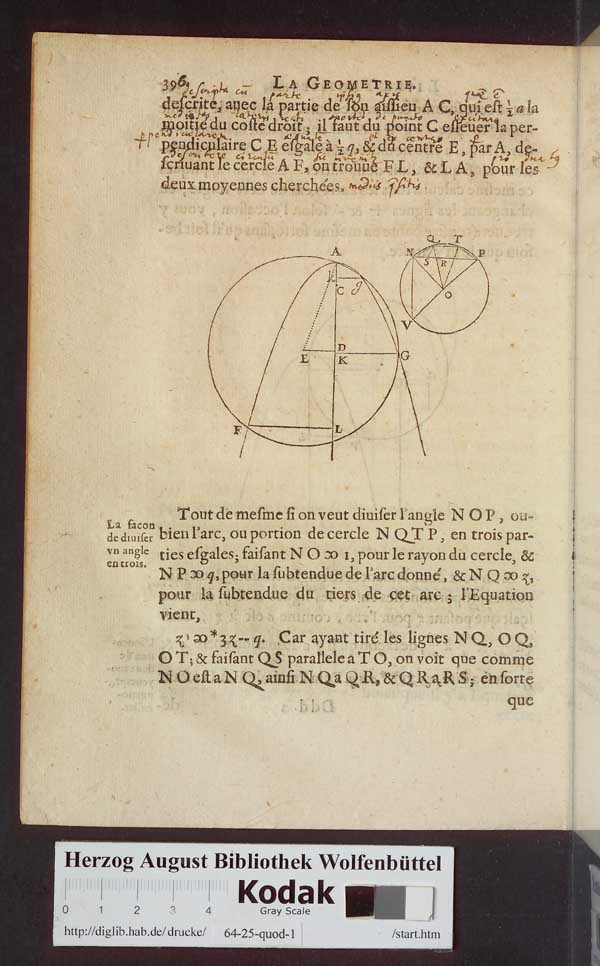 396. LA GEOMETRIE.
descripta cũ parte ipsius axis quæ ē
deſcrite, auec la partie de ſon aiſſieu A C, qui eſt ½ a la
moitié du coſté droit; il faut du point C eſleuer la per-
pendiculaire C E eſgale à ½ q, & du centre E, par A, de-
ſcriuant le cercle A F, on trouue F L, & L A, pour les
deux moyennes cherchées. mediis
A
C
g
E
D
K
G
F
L
N
Q
T
P
S
R
O
V
La facon
de diuiſer
vn angle
en trois.
Tout de meſme ſi on veut diuiſer l'angle N O P, ou-
bien l'arc, ou portion de cercle N Q T P, en trois par-
ties eſgales; faiſant N O ꝏ 1, pour le rayon du cercle, &
N P ꝏ q, pour la ſubtendue de l'arc donné, & N Q ꝏ z,
pour la ſubtendue du tiers de cet arc; l'Equation
vient,
z³ ꝏ * 3 z -- q. Car ayant tiré les lignes N Q, O Q,
O T; & faiſant Q S parallele a T O, on voit que comme
N O eſt a N Q, ainſi N Q a Q R, & Q R a R S; en ſorte
que
Herzog August Bibliothek Wolfenbüttel
Kodak
Gray Scale
0 1 2 3 4
http://diglib.hab.de/drucke/ 64-25-quod-1 /start.htm